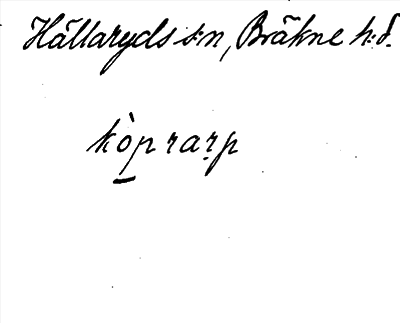 Hällaryds s:n, Bräkne h:d.
kò̱praṛp